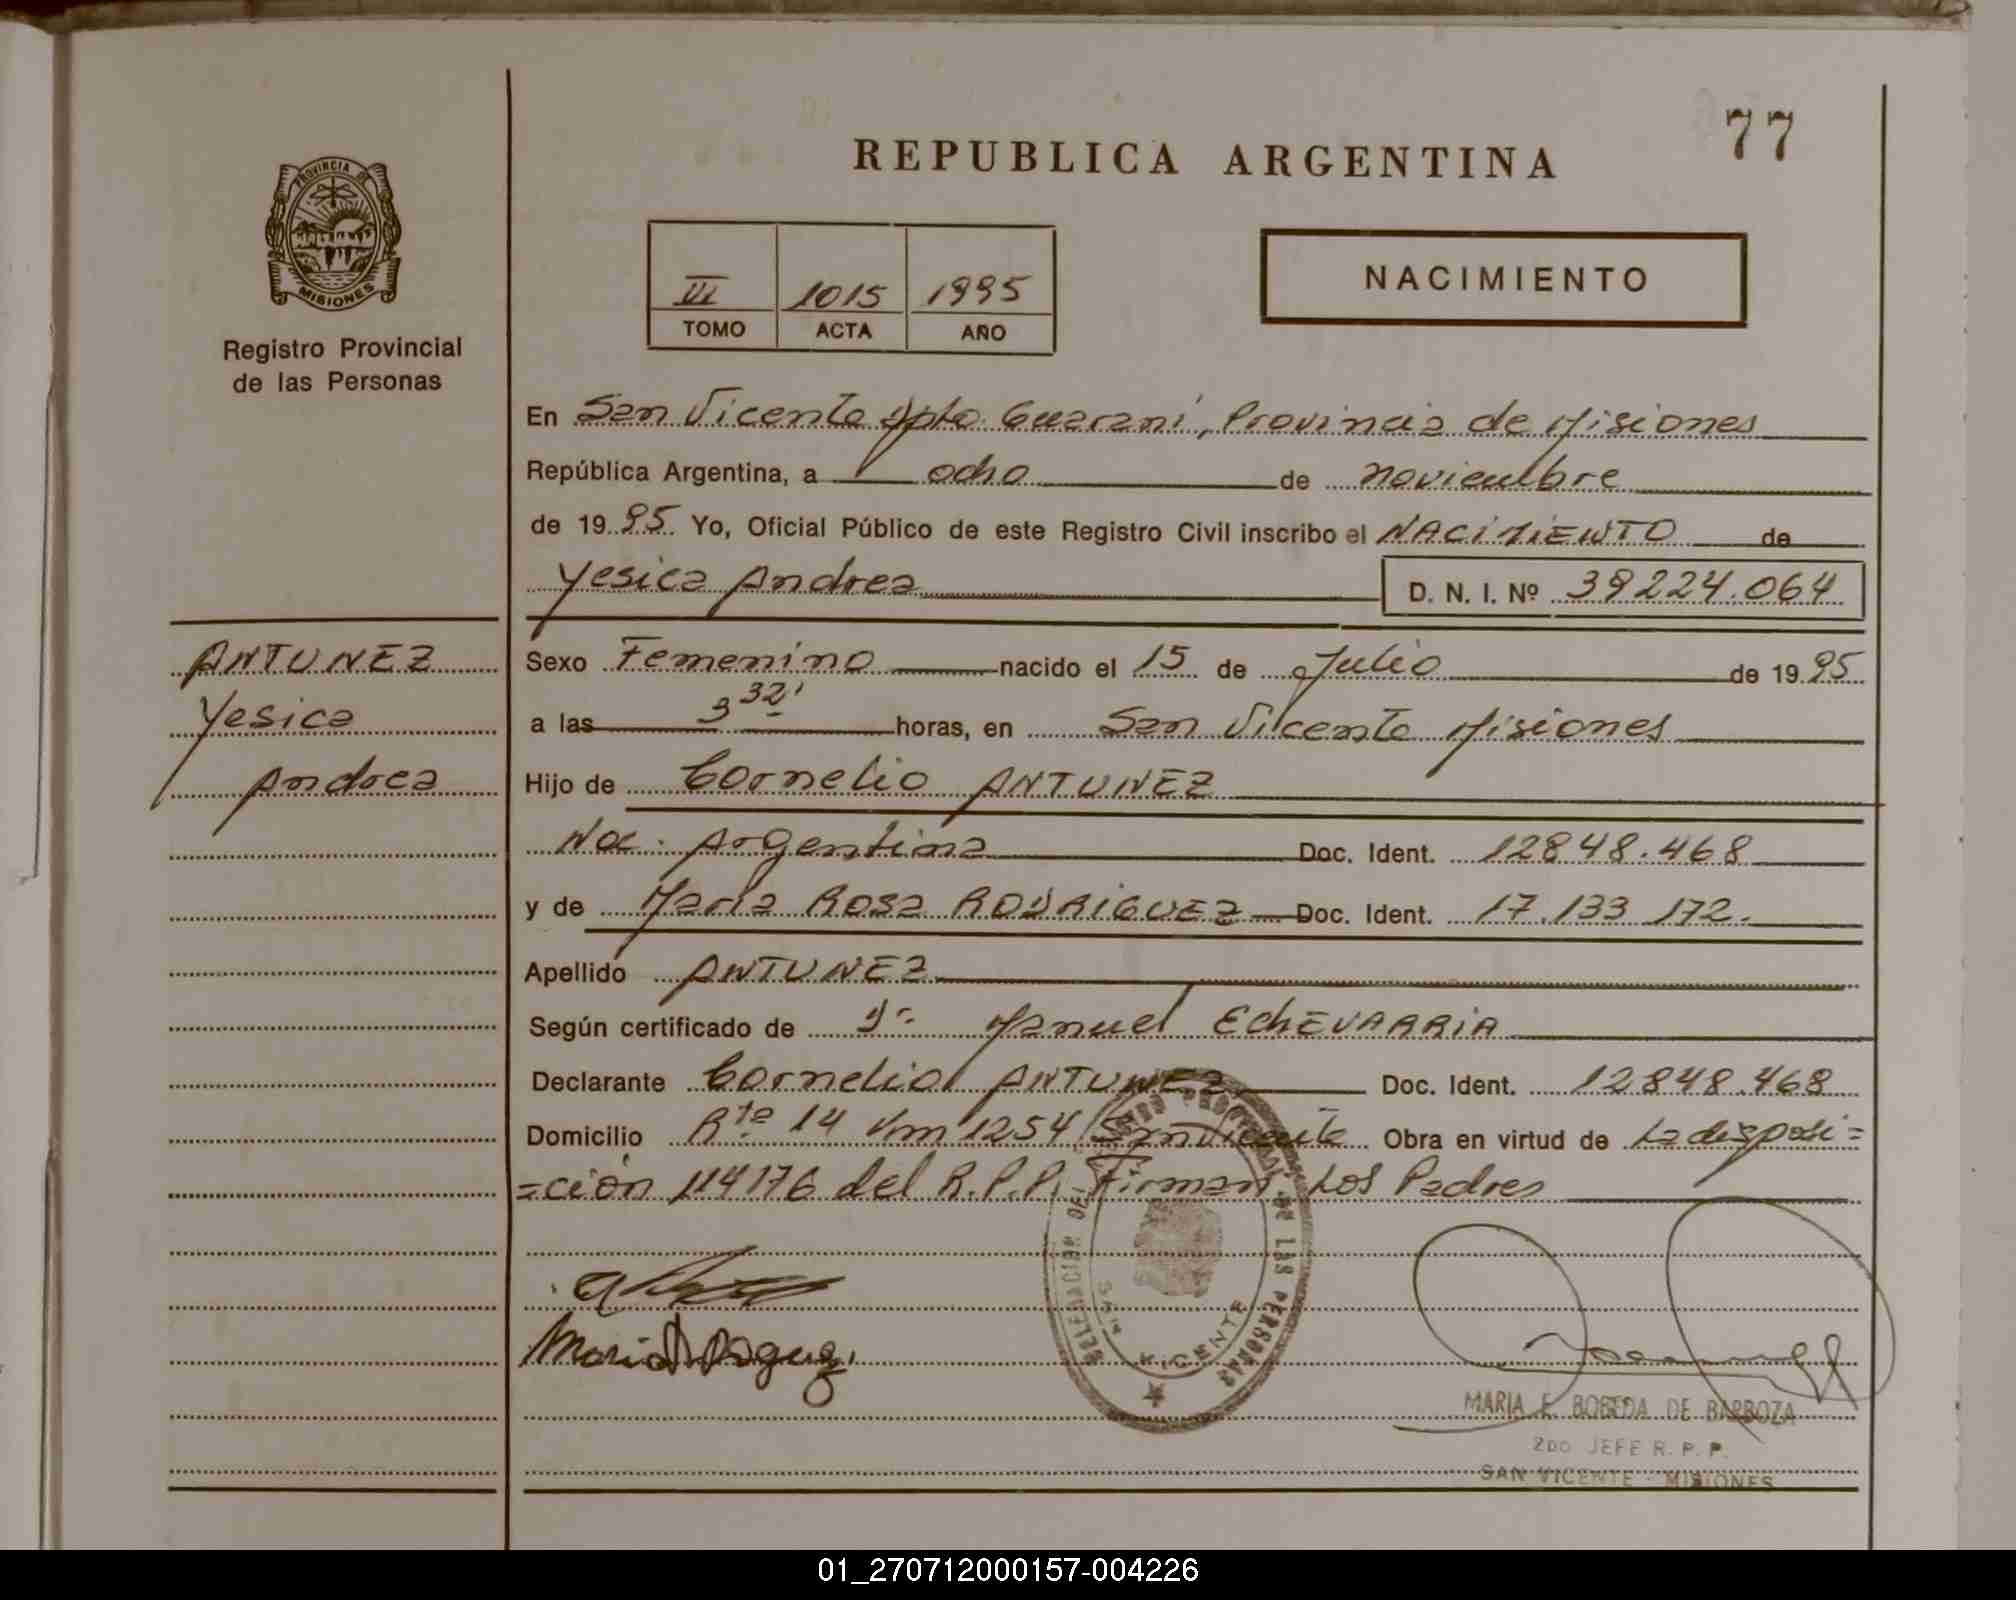 77
REPUBLICA ARGENTINA
PROVINCIA DE
MISIONES
Registro Provincial
de las Personas
NACIMIENTO
VI 1015 1995
TOMO ACTA AÑO
En San Vicente Dpto. Guarani, Provincia de Misiones
República Argentina, a ocho de noviembre
de 1995 Yo, Oficial Público de este Registro Civil inscribo el NACIMIENTO de
Yesica Andrea D. N. I. Nº 39224.064
ANTUNEZ
Yesica
Andrea
Sexo Femenino nacido el 15 de Julio de 1995
a las 3 32' horas, en San Vicente Misiones
Hijo de Cornelio ANTUNEZ
Nac. Argentina Doc. Ident. 12848.468
y de Maria Rosa RODRIGUEZ Doc. Ident. 17.133 172.
Apellido ANTUNEZ
Según certificado de Dr. Manuel EchEVARRIA
Declarante Cornelio ANTUNEZ Doc. Ident. 12848.468
Domicilio Rta 14 Km 1254 San Vicente Obra en virtud de La disposi=
=ción 114176 del R.P.P. Firman Los Padres
DELEGACION DEL REGISTRO PROVINCIAL DE LAS PERSONAS
SAN VICENTE
MARIA E. BOBEDA DE BARBOZA
2DO JEFE R. P. P.
SAN VICENTE - MISIONES
01_270712000157-004226